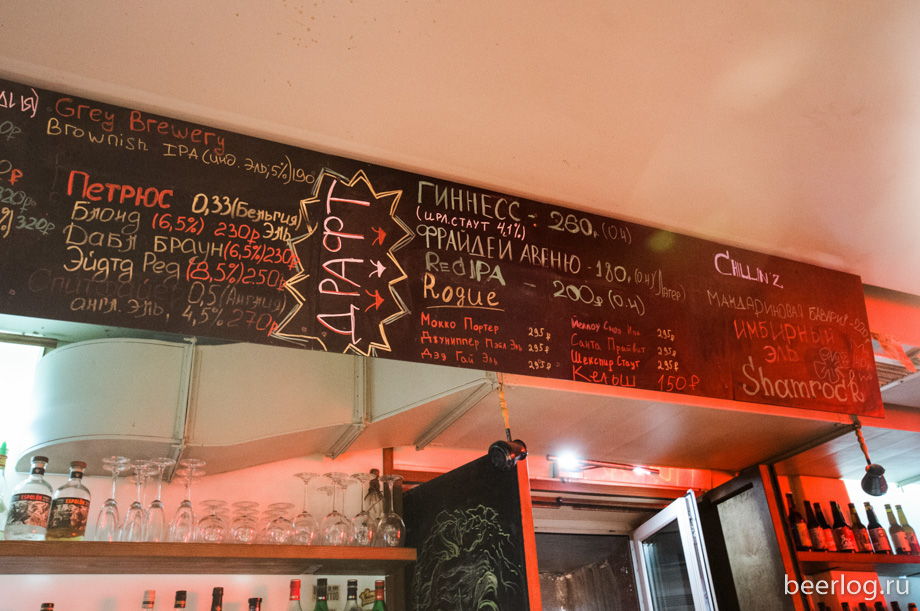 Grey Brewery
Brownish IPA (инд. эль, 5%) 190
320₽
Петрюс 0,33 (Бельгия)
Блонд (6,5%) 230₽ эль
Дабл Браун (6,5%) 230₽
Эйдтд Ред (8,5%) 250₽
0,5 (Англия)
англ. эль, 4,5% 270₽
ДРАФТ
Гиннесс - 260₽ (0,4)
(ирл. стаут 4,1%)
Фрайдей Авеню - 180₽ (0,4) Лагер
Red IPA - 200₽ (0,4)
Rogue
Мокко Портер 295₽
Джуниппер Пэйл Эль 295₽
Дэд Гай Эль 295₽
Санта Прайвит 295₽
Шекспир Стаут 295₽
Кёльш 150₽
Chillin'z
Мандариновая Бавария
Имбирный
эль
Shamrock
ESPOLÒN
ESPOLÒN
beerlog.ru